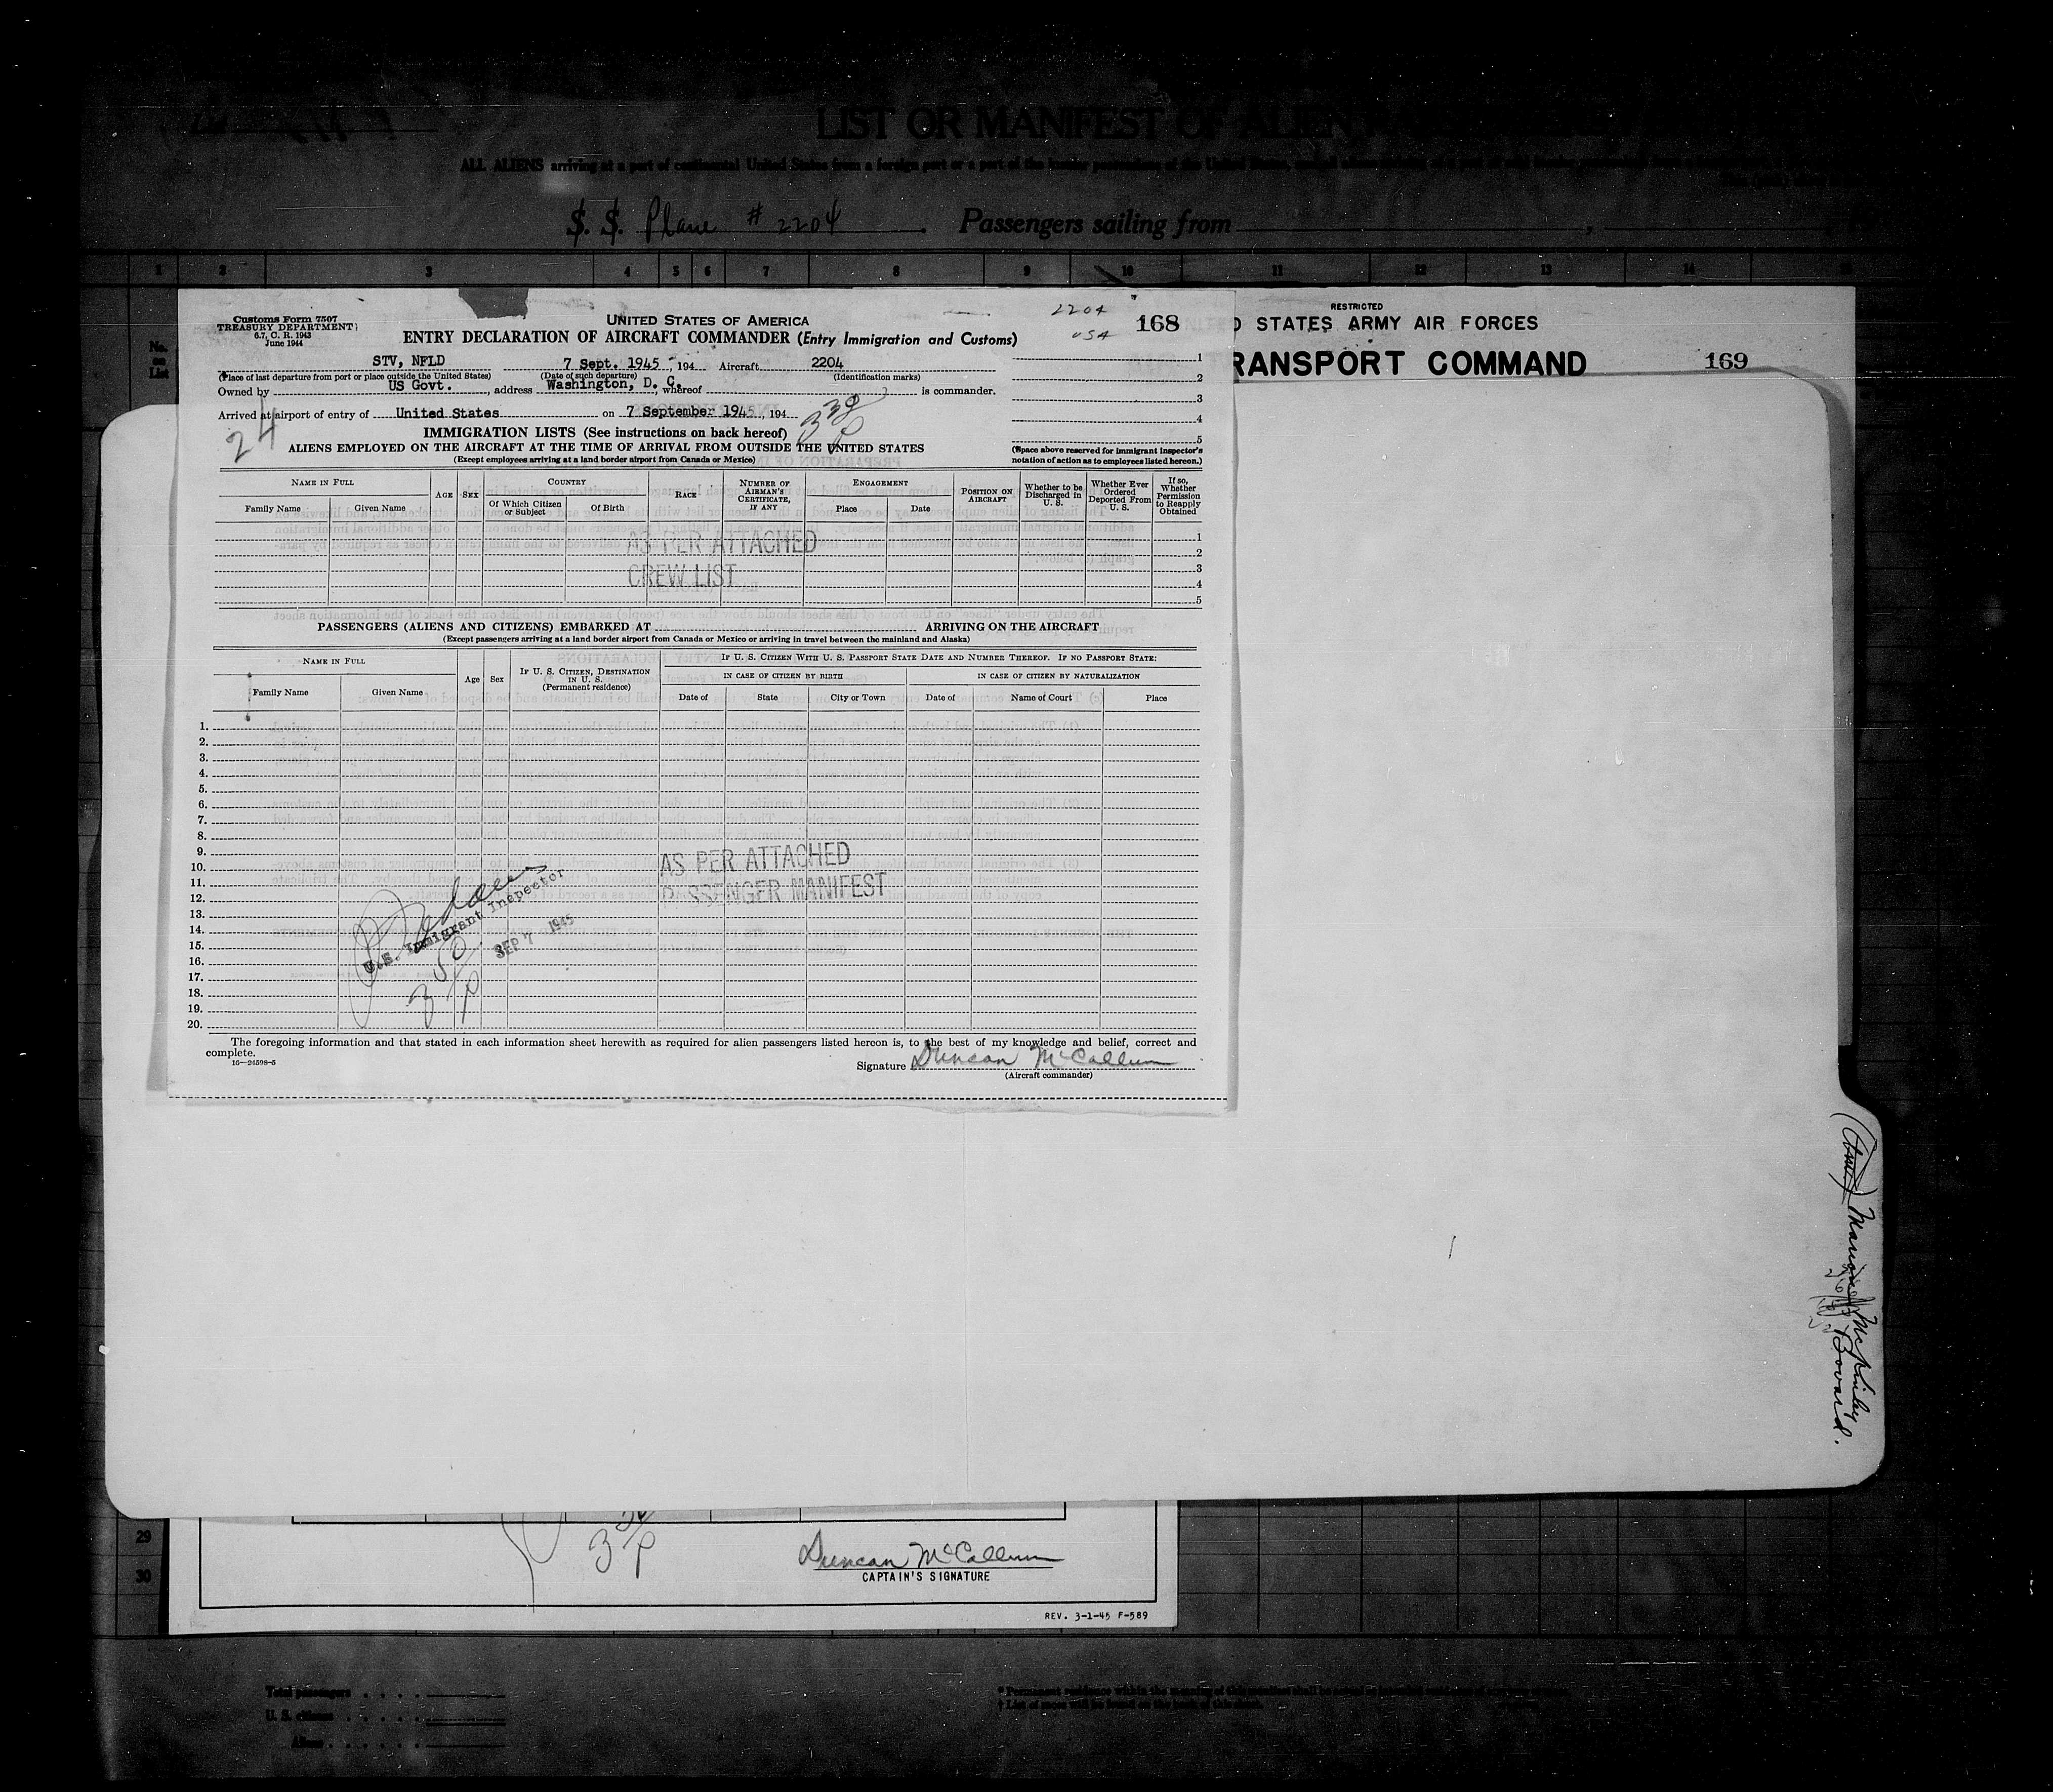 LIST OR MANIFEST OF ALIEN
ALL ALIENS arriving at a port of continental United States from a foreign port or a port of the insular possessions of the United States
S. S. Plane # 2204 Passengers sailing from
1 2 3 4 5 6 7 8 9 10 11 12 13 14 15
No. on List
Customs Form 7507
TREASURY DEPARTMENT
6.7, C. R. 1943
June 1944
UNITED STATES OF AMERICA
ENTRY DECLARATION OF AIRCRAFT COMMANDER (Entry Immigration and Customs)
2204
USA
168
STV, NFLD 7 Sept. 1945, 194 Aircraft 2204
(Place of last departure from port or place outside the United States) (Date of such departure) (Identification marks)
Owned by US Govt., address Washington, D. C. whereof is commander.
Arrived at airport of entry of United States on 7 September 1945, 194
24
3 30 P
1
2
3
4
5
IMMIGRATION LISTS (See instructions on back hereof)
ALIENS EMPLOYED ON THE AIRCRAFT AT THE TIME OF ARRIVAL FROM OUTSIDE THE UNITED STATES
(Except employees arriving at a land border airport from Canada or Mexico)
(Space above reserved for immigrant inspector's notation of action as to employees listed hereon.)
NAME IN FULL AGE SEX COUNTRY RACE NUMBER OF AIRMAN'S CERTIFICATE, IF ANY ENGAGEMENT POSITION ON AIRCRAFT Whether to be Discharged in U. S. Whether Ever Ordered Deported From U. S. If so, Whether Permission to Reapply Obtained
Family Name Given Name Of Which Citizen or Subject Of Birth Place Date
AS PER ATTACHED
CREW LIST
1
2
3
4
5
PASSENGERS (ALIENS AND CITIZENS) EMBARKED AT ARRIVING ON THE AIRCRAFT
(Except passengers arriving at a land border airport from Canada or Mexico or arriving in travel between the mainland and Alaska)
NAME IN FULL Age Sex IF U. S. CITIZEN, DESTINATION IN U. S. (Permanent residence) IF U. S. CITIZEN WITH U. S. PASSPORT STATE DATE AND NUMBER THEREOF. IF NO PASSPORT STATE:
IN CASE OF CITIZEN BY BIRTH IN CASE OF CITIZEN BY NATURALIZATION
Family Name Given Name Date of State City or Town Date of Name of Court Place
1.
2.
3.
4.
5.
6.
7.
8.
9.
10.
11.
12.
13.
14.
15.
16.
17.
18.
19.
20.
AS PER ATTACHED
PASSENGER MANIFEST
U.S. Immigrant Inspector
SEP 7 1945
3 50 P
The foregoing information and that stated in each information sheet herewith as required for alien passengers listed hereon is, to the best of my knowledge and belief, correct and complete.
16—24598-5
Signature Duncan McCallum
(Aircraft commander)
RESTRICTED
D STATES ARMY AIR FORCES
RANSPORT COMMAND 169
Marion McKinley Bovard.
29
30
Duncan McCallum
CAPTAIN'S SIGNATURE
REV. 3-1-45 F-589
Total passengers
U. S. citizens
Aliens
* Permanent residence within the meaning of this manifest shall be actual or intended residence of one year or more.
† List of races will be found on the back of this sheet.